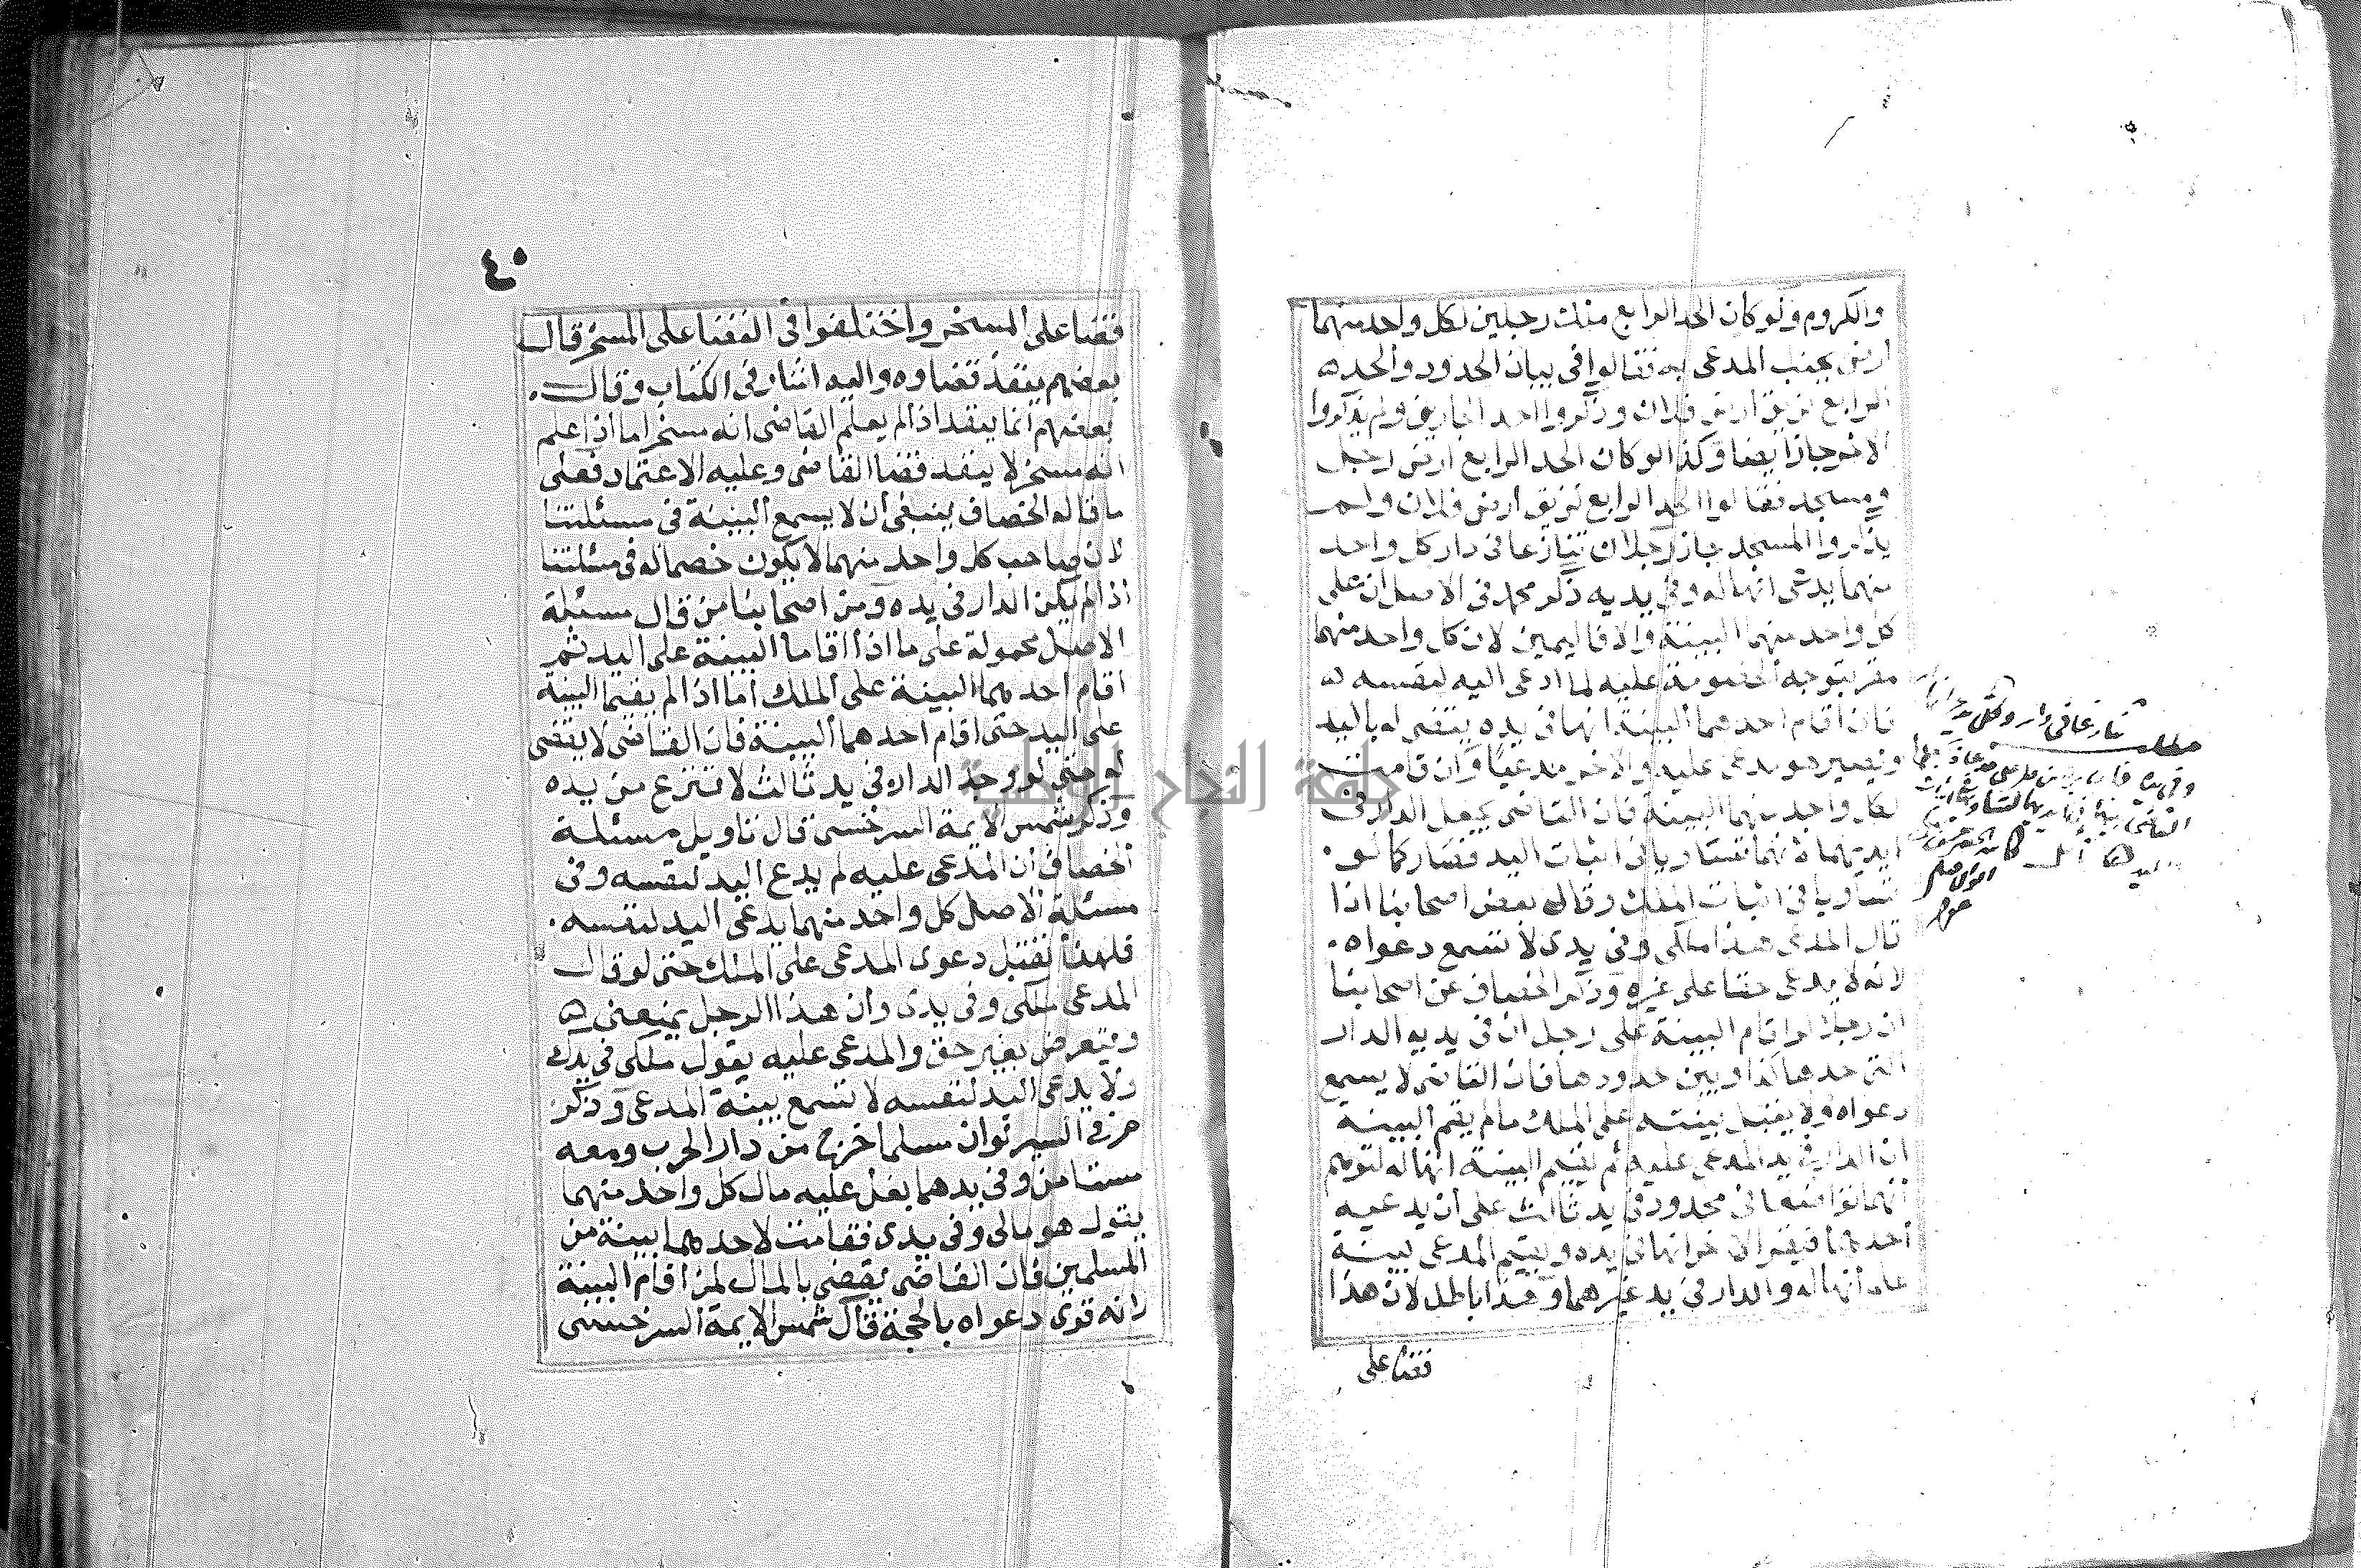 والكروم ولو كان الحد الرابع ملك رجلين لكل واحد منهما
ارض بجنب المدعى به فقالوا في بيان الحدود والحد
الرابع لزيق ارض فلان وذكروا احد الجارين ولم يذكروا
الاخر جاز ايضا وكذا لو كان الحد الرابع ارض رجل
ومسجد فقالوا الحد الرابع لزيق ارض فلان ولم
يذكروا المسجد جاز رجلان تنازعا في دار كل واحد
منهما يدعى انها له وفي يديه ذكر محمد في الاصل ان على
كل واحد منهما البينة والا فاليمين لان كل واحد منهما
مقر بتوجه الخصومة عليه لما ادعى اليد لنفسه
فان اقام احدهما البينة انها في يده يقضى له باليد
ويصير هو مدعى عليه والاخر مدعيا وان قامت
لكل واحد منهما البينة فان القاضي يجعل الدار في
ايديهما لانهما تساويا في اثبات اليد فصار كما لو
تساويا في اثبات الملك وقال بعض اصحابنا اذا
قال المدعى هذا ملكى وفي يدى لا تسمع دعواه
لانه لا يدعى حقا على غيره وذكر الخصاف عن اصحابنا
ان رجلا لو اقام البينة على رجل ان في يديه الدار
التي حدها كذا وبين حدودها فان القاضى لا يسمع
دعواه ولا يقبل بينته على الملك مالم يقم البينة
ان الدار في يد المدعى عليه ثم يقيم البينة انها له لتوهم
انهما تواضعا في محدود في يد ثالث على ان يدعيه
احدهما فيقر الاخر انها في يده ويقيم المدعى بينة
على انها له والدار في يد غيرهما وهذا باطل لان هذا
قضا على
تنازعا في دار وكل يدعى انها
مطلب
٤٥
قضا على المسخر واختلفوا في القضا على المسخر قال
بعضهم ينفذ قضاوه واليه اشار في الكتاب وقال
بعضهم انما ينفذ اذا لم يعلم القاضى انه مسخر اما اذا علم
انه مسخر لا ينفذ قضا القاضى وعليه الاعتماد فعلى
ما قاله الخصاف ينبغى ان لا يسمع البينة في مسئلتنا
لان صاحب كل واحد منهما لا يكون خصما له في مسئلتنا
اذا لم يكن الدار في يده ومن اصحابنا من قال مسئلة
الاصل محمولة على ما اذا اقاما البينة على اليد ثم
اقام احدهما البينة على الملك اما اذا لم يقيما البينة
على اليد حتى اقام احدهما البينة فان القاضى لا يقضى
له حتى لو وجد الدار في يد ثالث لا تنزع من يده
وذكر شمس الايمة السرخسى قال تاويل مسئلة
الخصاف ان المدعى عليه لم يدع اليد لنفسه وفي
مسئلة الاصل كل واحد منهما يدعى اليد لنفسه
فلهذا تقبل دعوى المدعى على الملك حتى لو قال
المدعى ملكى وفي يدى وان هذا الرجل يمنعنى
ويتعرض بغير حق والمدعى عليه يقول ملكى في يدك
ولا يدعى اليد لنفسه لا تسمع بينة المدعى وذكر
في السير لو ان مسلما خرج من دار الحرب ومعه
مستامن وفي يدهما بغل عليه مال كل واحد منهما
يقول هو مالى وفي يدى فقامت لاحدهما بينة من
المسلمين فان القاضى يقضى بالمال لمن اقام البينة
لانه قوى دعواه بالحجة قال شمس الايمة السرخسى